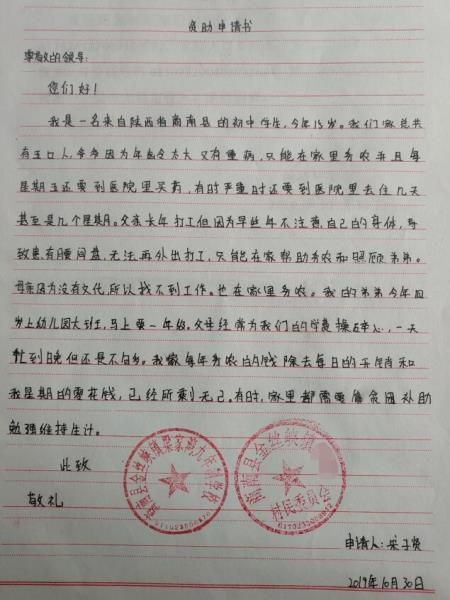 资助申请书
尊敬的领导:
您们好!
我是一名来自陕西省商南县的初中学生,今年15岁。我们家总共
有五口人,爷爷因为年龄太大又有重病,只能在家里务农并且每
星期五还要到医院里买药,有时严重时还要到医院里去住几天
甚至是几个星期。父亲长年打工但因为早些年不注意自己的身体,导
致患有腰间盘,无法再外出打工,只能在家帮助务农和照顾弟弟。
母亲因为没有文化,所以找不到工作。也在家里务农。我的弟弟今年四
岁上幼儿园大班,马上要一年级。父母经常为我们的学费操碎心,一天
忙到晚但还是不够。我家每年务农的钱除去每日的开销和
我星期的零花钱,已经所剩无己。有时,家里都需要靠贫困补助
勉强维持生计。
此致
敬礼
商南县金丝峡镇梁家湾九年制学校
商南县金丝峡镇
村民委员会
申请人:
2019年10月30日